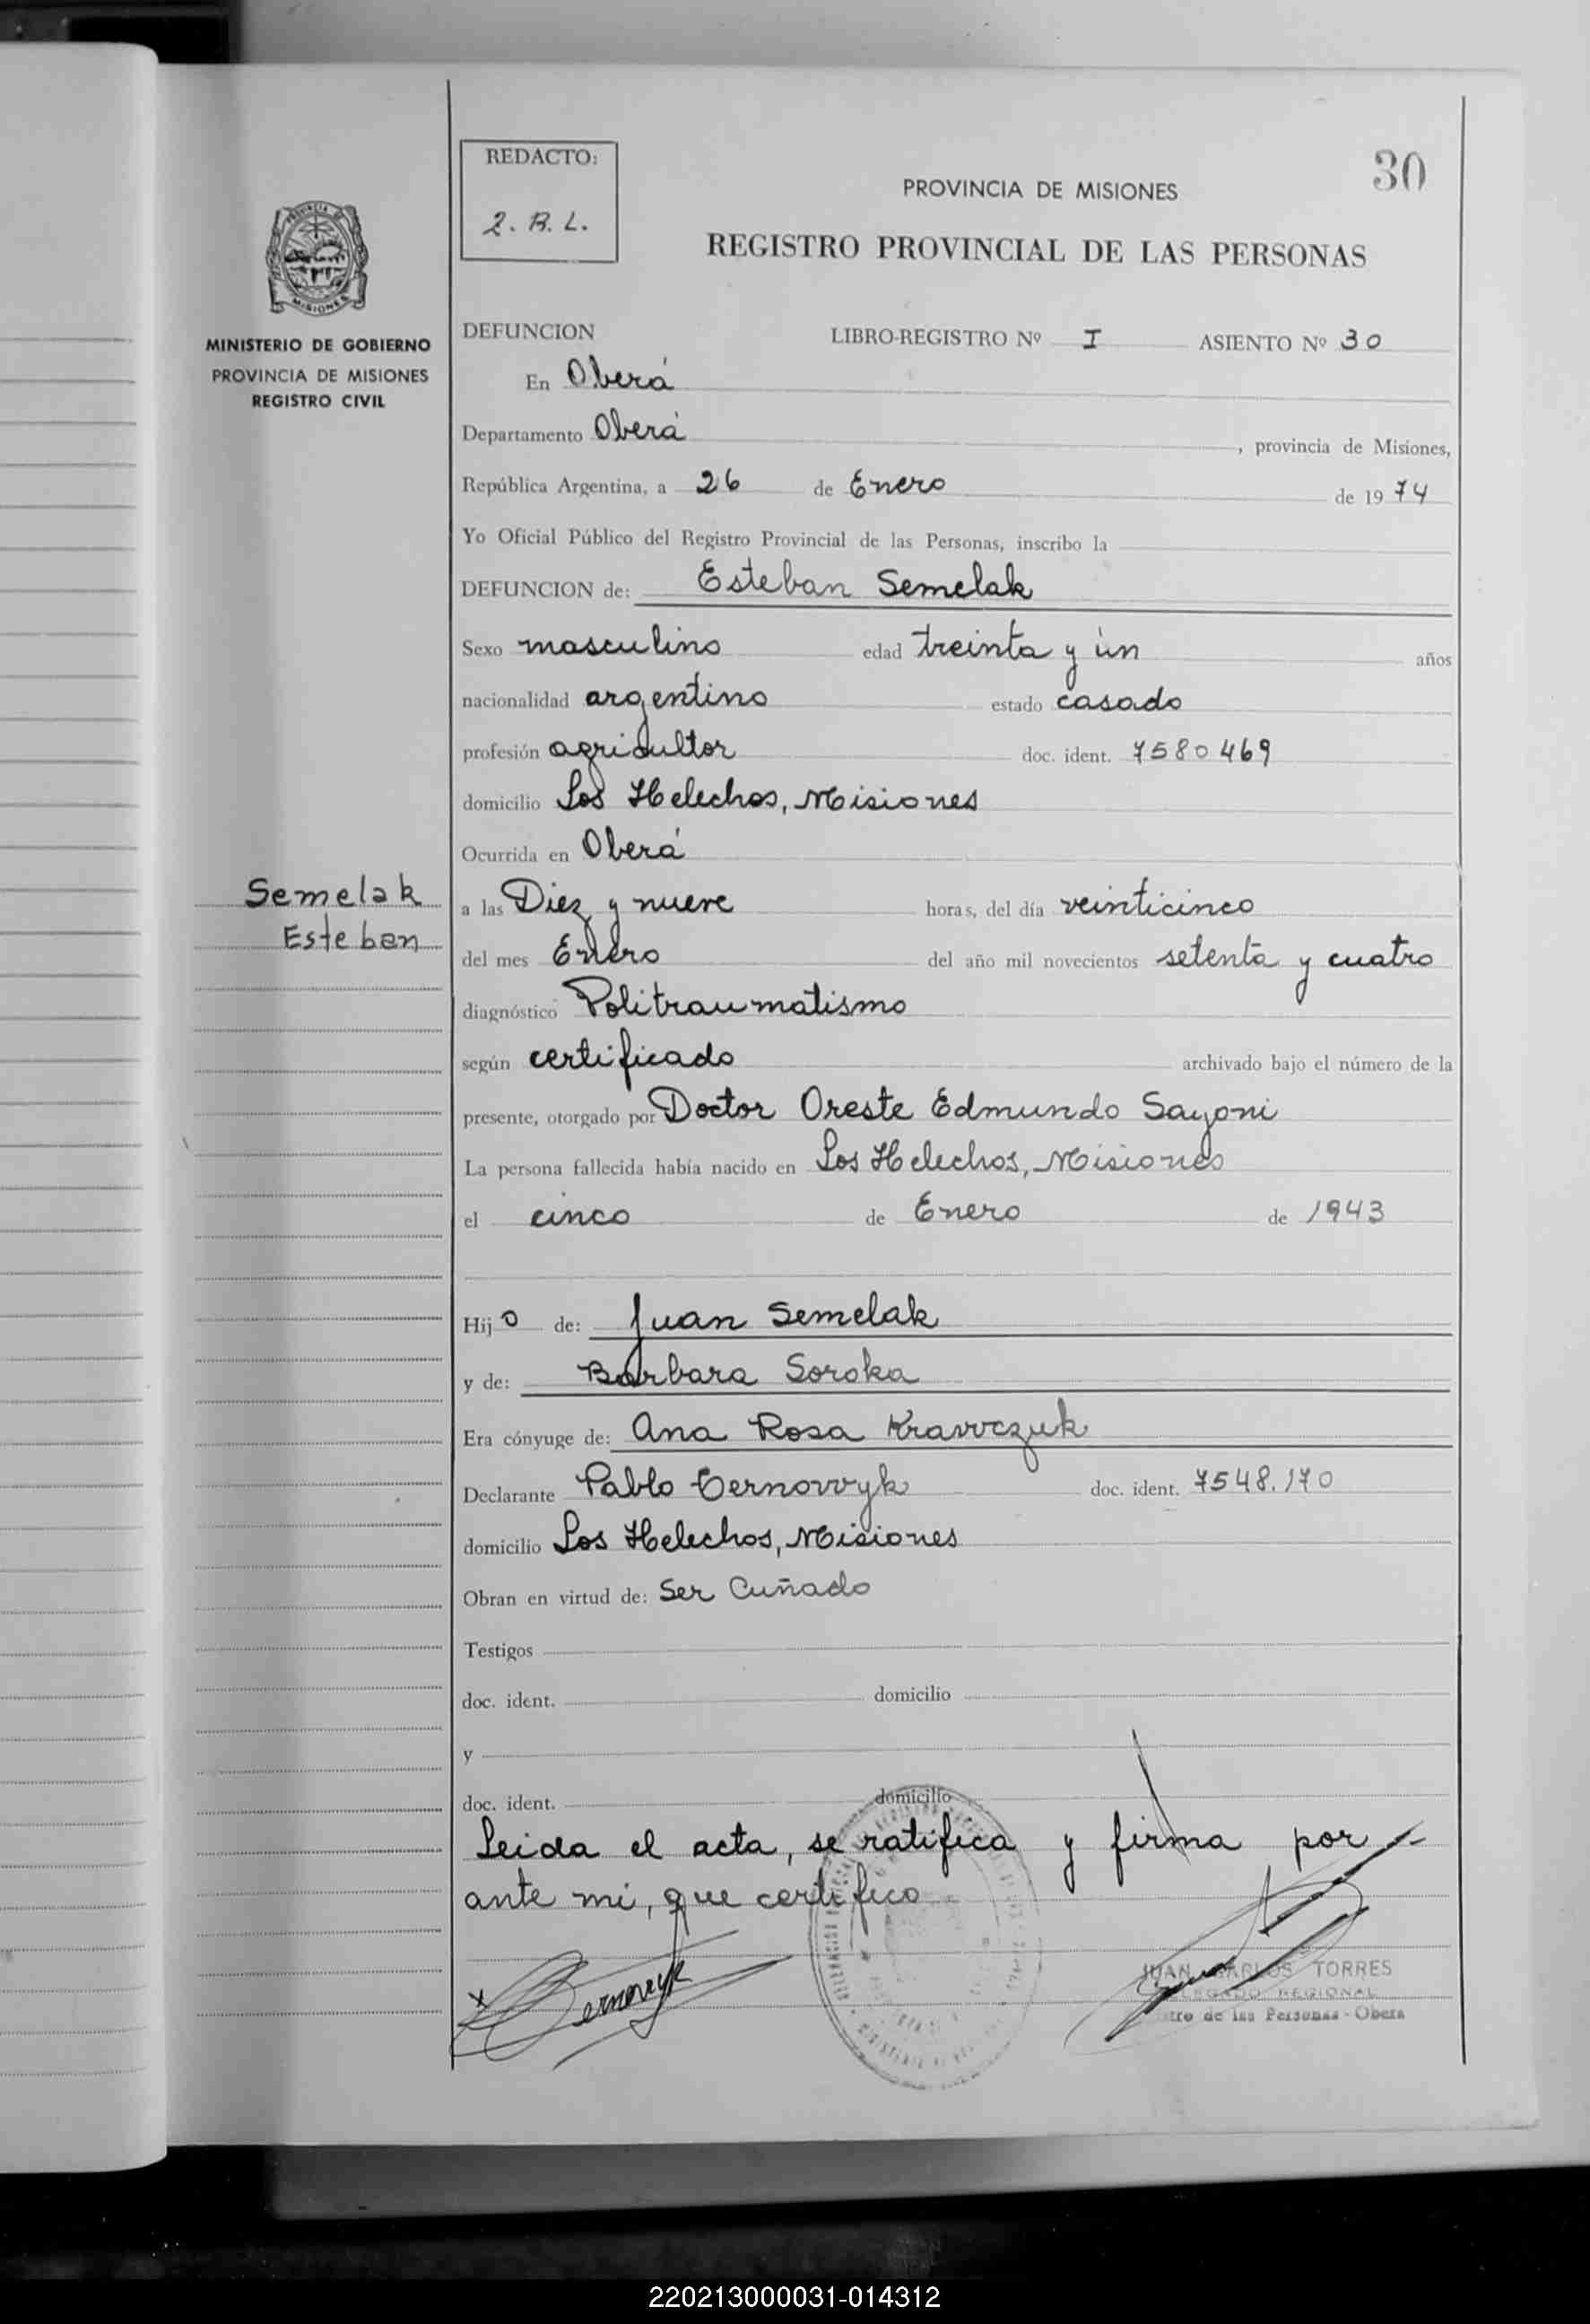 REDACTO:
2. R. L.
30
PROVINCIA DE MISIONES
REGISTRO PROVINCIAL DE LAS PERSONAS
MISIONES
MINISTERIO DE GOBIERNO
PROVINCIA DE MISIONES
REGISTRO CIVIL
DEFUNCION LIBRO-REGISTRO Nº I ASIENTO Nº 30
En Oberá
Departamento Oberá, provincia de Misiones,
República Argentina, a 26 de Enero de 1974
Yo Oficial Público del Registro Provincial de las Personas, inscribo la
DEFUNCION de: Esteban Semelak
Sexo masculino edad treinta y ún años
nacionalidad argentino estado casado
profesión agricultor doc. ident. 7580469
domicilio Los Helechos, Misiones
Ocurrida en Oberá
Semelak
Esteban
a las Diez y nueve horas, del día veinticinco
del mes Enero del año mil novecientos setenta y cuatro
diagnóstico Politraumatismo
según certificado archivado bajo el número de la
presente, otorgado por Doctor Oreste Edmundo Sayoni
La persona fallecida había nacido en Los Helechos, Misiones
el cinco de Enero de 1943
Hijo de: Juan Semelak
y de: Barbara Soroka
Era cónyuge de: Ana Rosa Kravvczuk
Declarante Pablo Cernovvyk doc. ident. 7548.170
domicilio Los Helechos, Misiones
Obran en virtud de: Ser Cuñado
Testigos
doc. ident. domicilio
y
doc. ident. domicilio
Leida el acta, se ratifica y firma por
ante mi, que certifico
x Cernovyk
JUAN CARLOS TORRES
DELEGADO REGIONAL
tro de las Personas - Obera
220213000031-014312